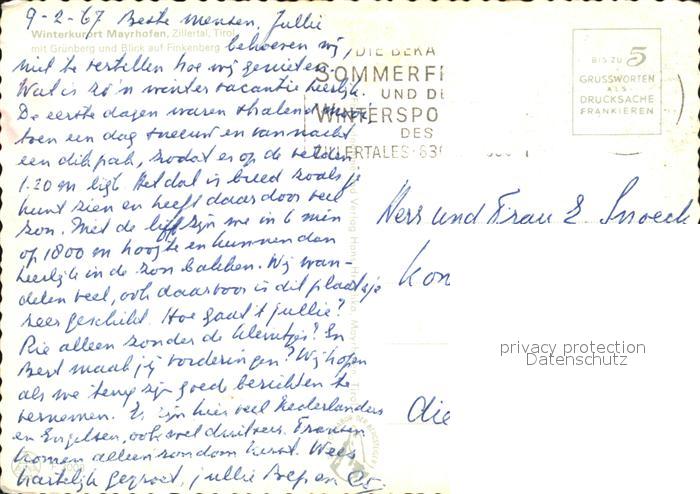 9-2-67 Beste mensen, Jullie
Winterkurort Mayrhofen, Zillertal, Tirol
mit Grünberg und Blick auf Finkenberg
behoeven wij,
niet te vertellen hoe wij genieten.
Wat is zo'n winter vacantie heerlijk.
De eerste dagen waren stralend
toen een dag sneeuw en vannacht
een dik pak, zodat er op de velden
1.20 m ligt. Het dal is breed zoals je
kunt zien en heeft daardoor veel
zon. Met de lift zijn we in 6 min
op 1800 m hoogte en kunnen dan
heerlijk in de zon bakken. Wij wan-
delen veel, ook daarvoor is dit plaatsje
zeer geschikt. Hoe gaat 't jullie?
Rie alleen zonder de kleintjes? En
Bert maakt jij vorderingen? Wij hopen
als we terug zijn goede berichten te
vernemen. Er zijn hier veel Nederlanders
en Engelsen, ook wel duitsers. Fransen
komen alleen rondom kerst. Wees
hartelijk gegroet, jullie Boep en Co.
DIE BEKA
SOMMERF
UND DI
WINTERSPO
DES
ZILLERTALES
BIS ZU 5
GRUSSWORTEN
ALS
DRUCKSACHE
FRANKIEREN
Herr und Frau E. Snoeck
Kon
die
privacy protection
Datenschutz